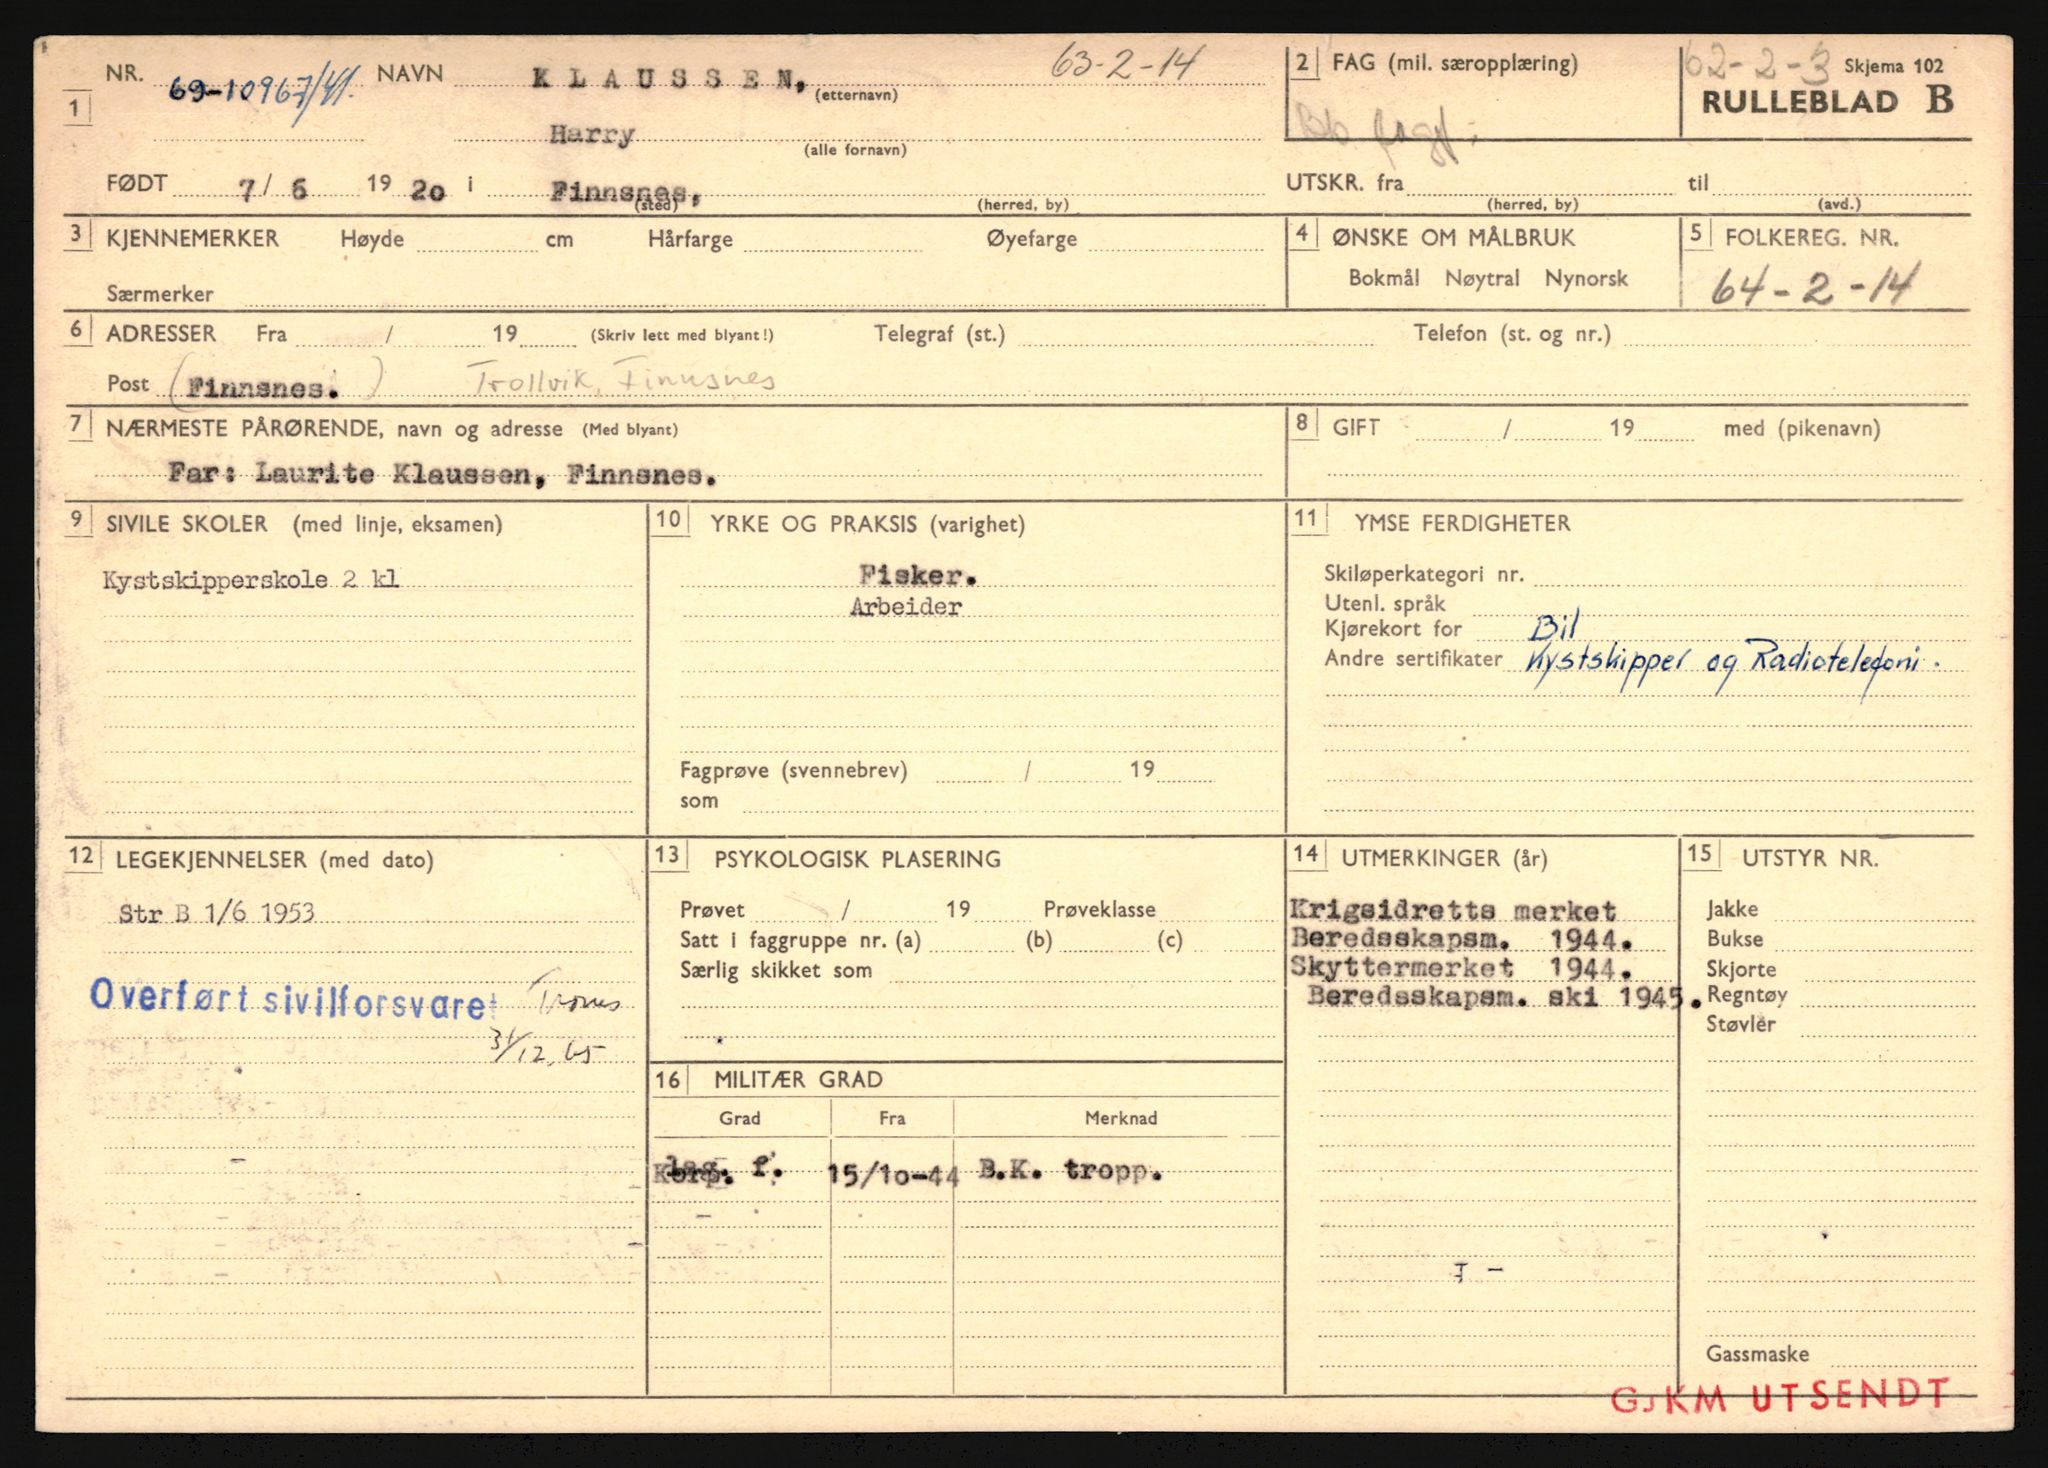 NR. 69-10967/41. NAVN KLAUSSEN, (etternavn) 63-2-14
2 FAG (mil. særopplæring)
62-2-3 Skjema 102
RULLEBLAD B
1
Harry
(alle fornavn)
FØDT 7/6 1920 i Finnsnes,
(sted) (herred, by)
UTSKR. fra til
(herred, by) (avd.)
3 KJENNEMERKER Høyde cm Hårfarge Øyefarge
Særmerker
4 ØNSKE OM MÅLBRUK
Bokmål Nøytral Nynorsk
5 FOLKEREG. NR.
64-2-14
6 ADRESSER Fra / 19 (Skriv lett med blyant!) Telegraf (st.) Telefon (st. og nr.)
Post (Finnsnes.) Trollvik, Finnsnes
7 NÆRMESTE PÅRØRENDE, navn og adresse (Med blyant)
Far: Laurite Klaussen, Finnsnes.
8 GIFT / 19 med (pikenavn)
9 SIVILE SKOLER (med linje, eksamen)
Kystskipperskole 2 kl
10 YRKE OG PRAKSIS (varighet)
Fisker.
Arbeider
Fagprøve (svennebrev) / 19
som
11 YMSE FERDIGHETER
Skiløperkategori nr.
Utenl. språk
Kjørekort for Bil
Andre sertifikater Kystskipper og Radiotelefoni.
12 LEGEKJENNELSER (med dato)
Str B 1/6 1953
Overført sivilforsvaret Troms
31/12.65
13 PSYKOLOGISK PLASERING
Prøvet / 19 Prøveklasse
Satt i faggruppe nr. (a) (b) (c)
Særlig skikket som
14 UTMERKINGER (år)
Krigsidretts merket
Beredsskapsm. 1944.
Skyttermerket 1944.
Beredsskapsm. ski 1945.
15 UTSTYR NR.
Jakke
Bukse
Skjorte
Regntøy
Støvler
Gassmaske
16 MILITÆR GRAD
Grad Fra Merknad
lag. f. 15/10-44 B.K. tropp.
GJKM UTSENDT